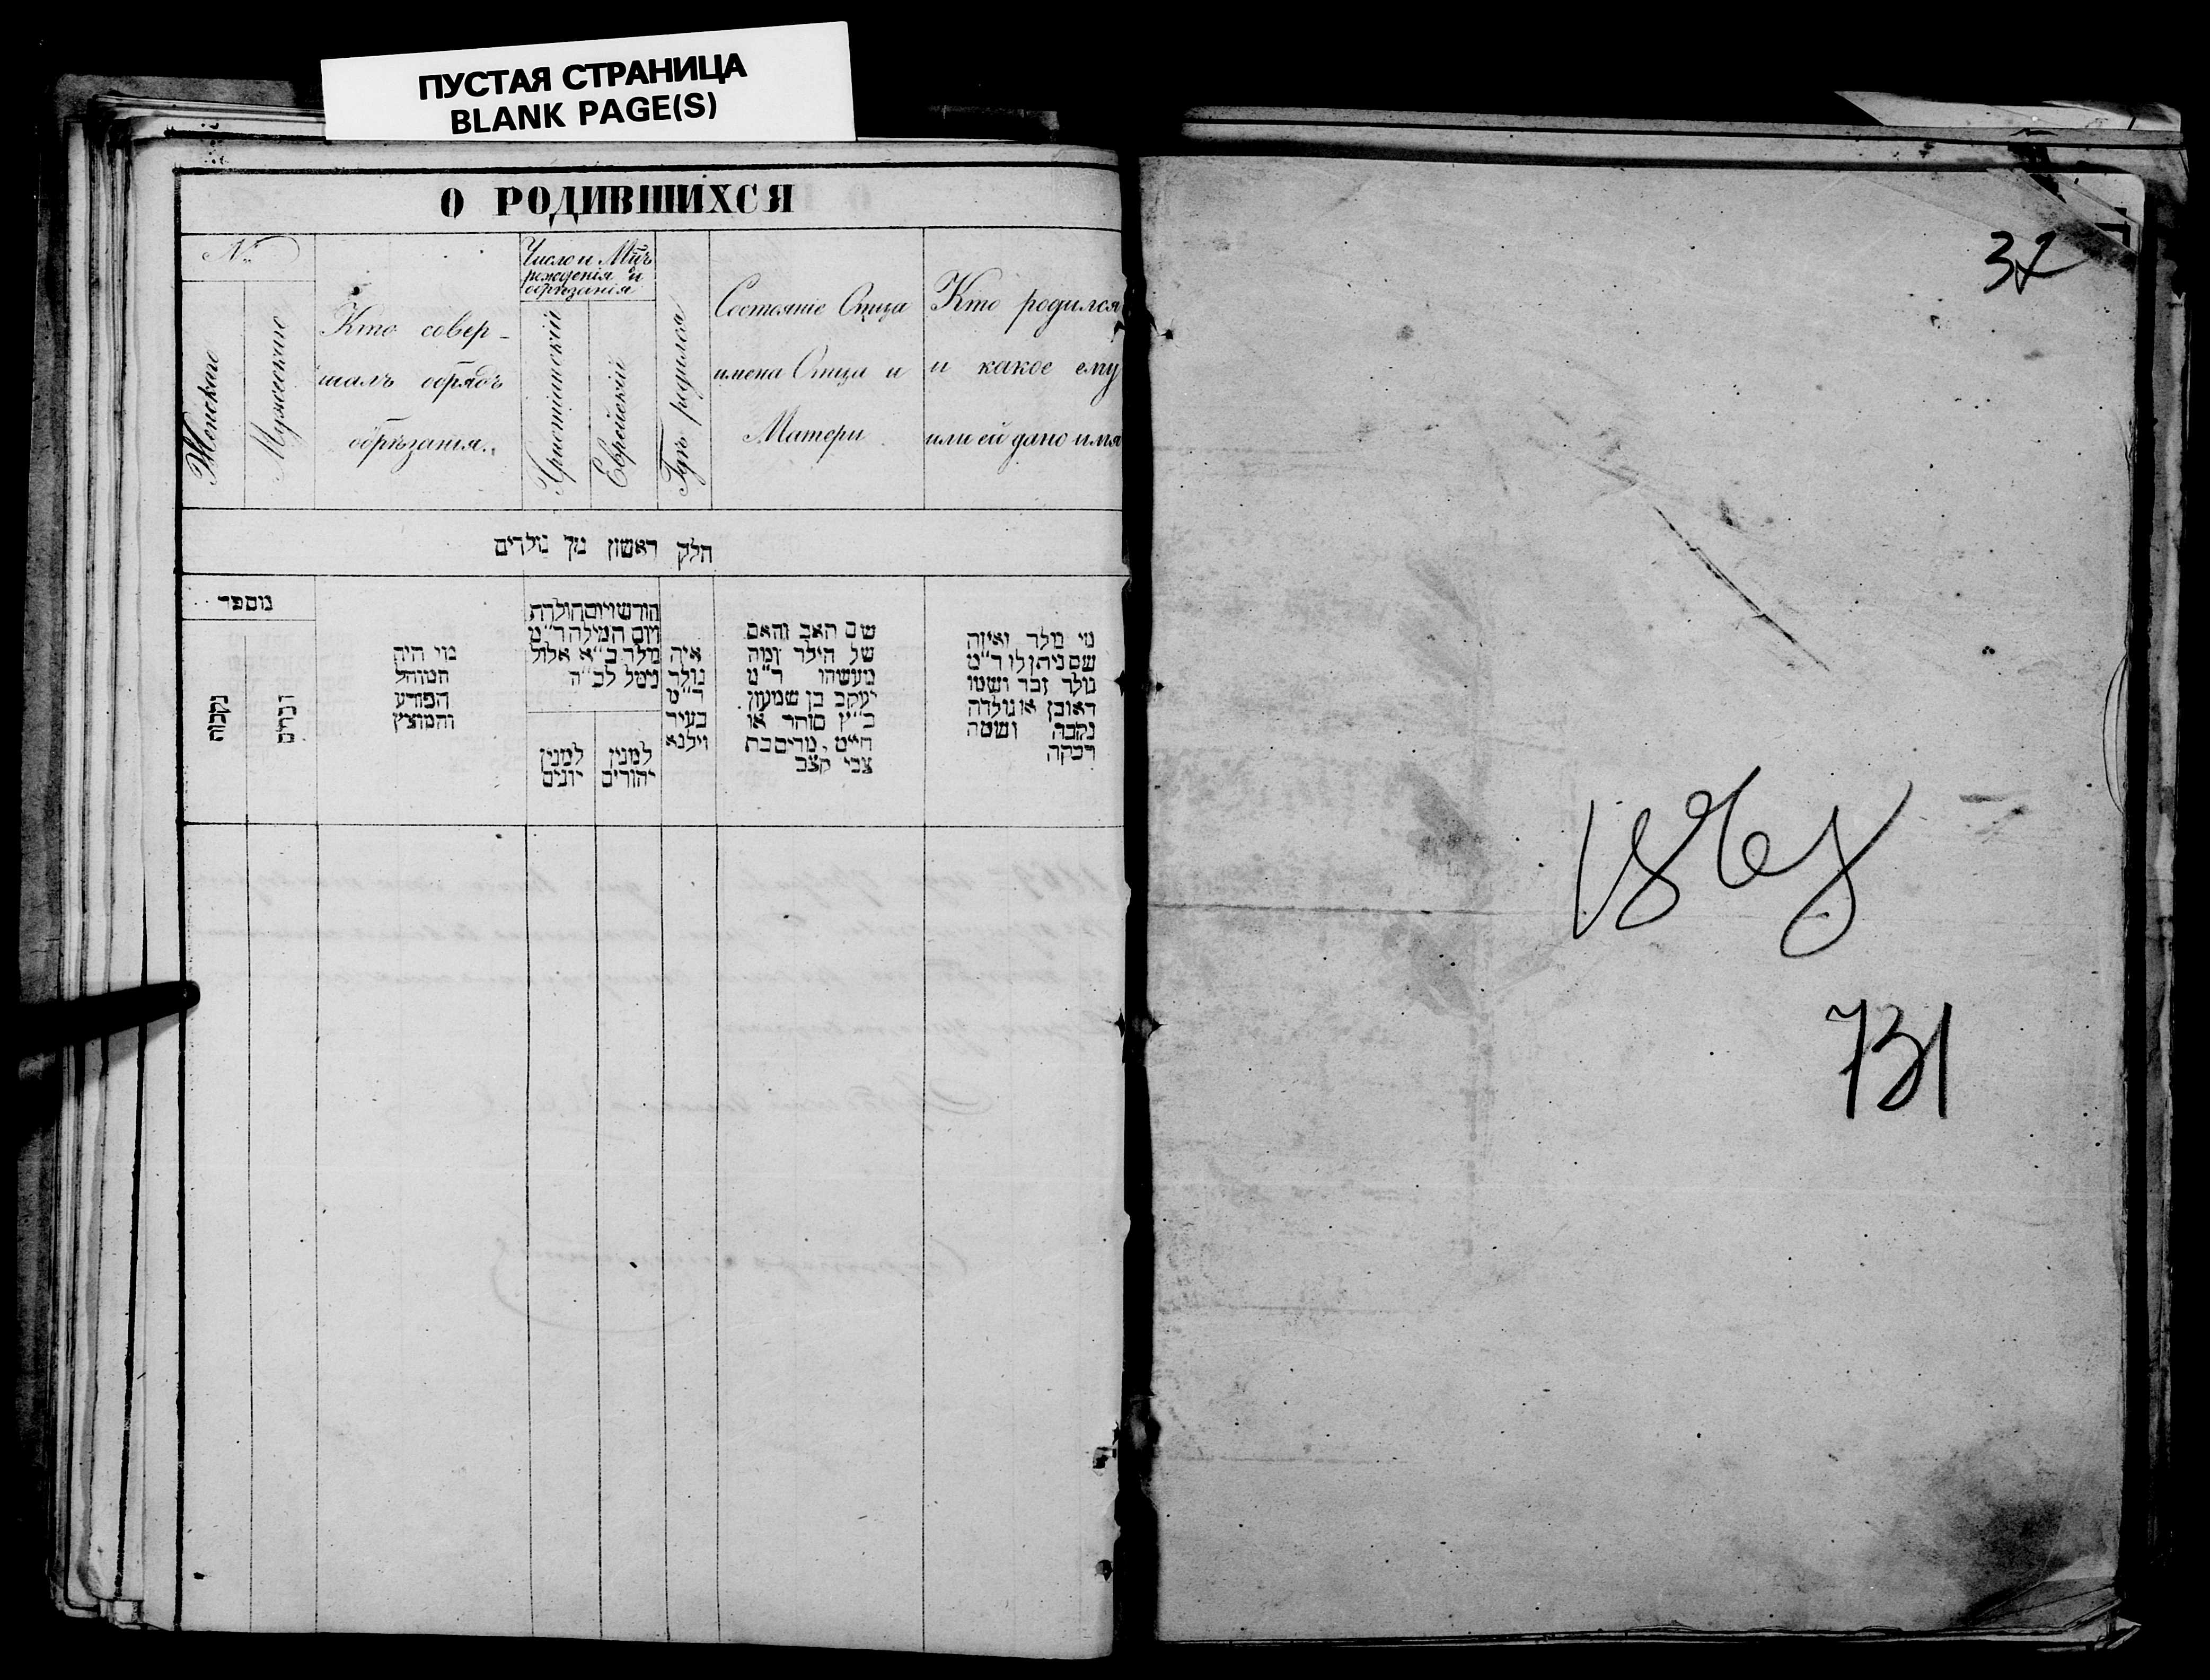 ПУСТАЯ СТРАНИЦА
BLANK PAGE(S)
О РОДИВШИХСЯ
№
Женскаго
Мужескаго
Кто совер-
шалъ обрядъ
обрѣзанія.
Число и Мцъ
рожденія и
обрѣзанія
Христіанскій
Еврейскій
Гдѣ родился
Состояніе Отца
имена Отца и
Матери
Кто родился
и какое ему
или ей дано имя
חלק ראשון מן נולדים
מספר
נקבות
זכרים
מי היה
המוהל
הפורע
והמוצץ
חודש ויום הולדת
ויום המילה ד״מ
נולד כ״א אלול
נימל לכ״ה
למנין
יונים
למנין
יהודים
איה
נולד
ד״מ
בעיר
וילנא
שם האב והאם
של הילד ומה
מעשהו ד״מ
יעקב בן שמעון
כ״ץ סוחר או
חייט, מרים בת
צבי קצב
מי נולד ואיזה
שם ניתן לו ד״מ
נולד זכר ושמו
ראובן או נולדה
נקבה ושמה
רבקה
37
731